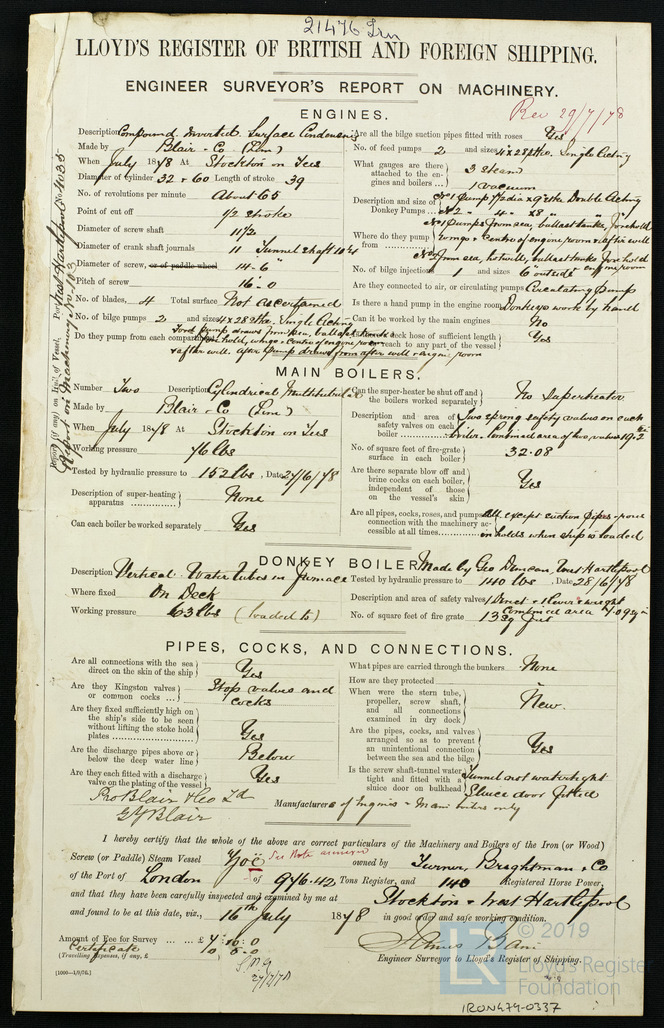 21476 Irn
LLOYD'S REGISTER OF BRITISH AND FOREIGN SHIPPING.
ENGINEER SURVEYOR'S REPORT ON MACHINERY.
Rec 29/7/78
ENGINES.
Description Compound Inverted Surface Condensing
Made by Blair & Co (Lim)
When July 1878 At Stockton on Tees
Diameter of cylinder 32 & 60 Length of stroke 39
No. of revolutions per minute About 65
Point of cut off 1/2 stroke
Diameter of screw shaft 11 1/2
Diameter of crank shaft journals 11 Tunnel shaft 10 1/4
Diameter of screw, or of paddle wheel 14-6
Pitch of screw 16-0
No. of blades, 4 Total surface Not ascertained
No. of bilge pumps 2 and sizes 4 x 28 stke. Single Acting
Do they pump from each compartment
& after well. After pump draws from after well & engine room
Are all the bilge suction pipes fitted with roses Yes
No. of feed pumps 2 and sizes 4 x 28 stke. Single Acting
What gauges are there attached to the engines and boilers 3 steam 1 vacuum
Description and size of Donkey Pumps No 1 Pump 7 dia x 9 stke Double Acting
No 2 " 4 " x 8 " " "
Where do they pump from No 1 Pumps from sea, ballast tanks, forehold
No 2 from sea, hotwell, ballast tanks, forehold
No. of bilge injections 1 and sizes 6 outside
Are they connected to air, or circulating pumps Circulating Pump
Is there a hand pump in the engine room Donkeys work by hand
Can it be worked by the main engines No
deck hose of sufficient length to reach to any part of the vessel Yes
Report (if any) on Hull of Vessel, Port West Hartlepool No. 4035
Report on Machinery No 103
MAIN BOILERS.
Number Two Description Cylindrical Multitubular
Made by Blair & Co (Lim)
When July 1878 At Stockton on Tees
Working pressure 76 lbs
Tested by hydraulic pressure to 152 lbs, Date 27/6/78
Description of super-heating apparatus None
Can each boiler be worked separately Yes
Can the super-heater be shut off and the boilers worked separately No superheater
Description and area of safety valves on each boiler Two spring safety valves on each boiler. Combined area of two valves 19.2
No. of square feet of fire-grate surface in each boiler 32.08
Are there separate blow off and brine cocks on each boiler, independent of those on the vessel's skin Yes
Are all pipes, cocks, roses, and pumps in connection with the machinery accessible at all times All except suction pipes & roses in holds when ship is loaded
DONKEY BOILER Made by Geo Duncan, West Hartlepool
Description Vertical. Water tubes in furnace
Where fixed On Deck
Working pressure 63 lbs (loaded to)
Tested by hydraulic pressure to 140 lbs, Date 28/6/78
Description and area of safety valves 1 Direct & 1 lever & weight
Combined area
No. of square feet of fire grate 13 sq feet
PIPES, COCKS, AND CONNECTIONS.
Are all connections with the sea direct on the skin of the ship Yes
Are they Kingston valves or common cocks Stop valves and cocks
Are they fixed sufficiently high on the ship's side to be seen without lifting the stoke hold plates Yes
Are the discharge pipes above or below the deep water line Below
Are they each fitted with a discharge valve on the plating of the vessel Yes
What pipes are carried through the bunkers None
How are they protected "
When were the stern tube, propeller, screw shaft, and all connections examined in dry dock New.
Are the pipes, cocks, and valves arranged so as to prevent an unintentional connection between the sea and the bilge Yes
Is the screw shaft-tunnel water tight and fitted with a sluice door Tunnel not watertight
Sluice door fitted
Pro Blair & Co Ld
G Y Blair
Manufacturers of Engines & Main boilers only
I hereby certify that the whole of the above are correct particulars of the Machinery and Boilers of the Iron (or Wood)
See Note annexed
Screw (or Paddle) Steam Vessel "Zoë" owned by Turner, Brightman & Co
of the Port of London of 976.42 Tons Register, and 140 Registered Horse Power,
and that they have been carefully inspected and examined by me at Stockton & West Hartlepool
and found to be at this date, viz., 16th July 1878 in good order and safe working condition.
Amount of Fee for Survey £
Certificate
(Travelling Expenses, if any, £
27/7/78
Engineer Surveyor to Lloyd's Register of Shipping.
© 2019
Lloyd's Register
Foundation
IRON479-0337